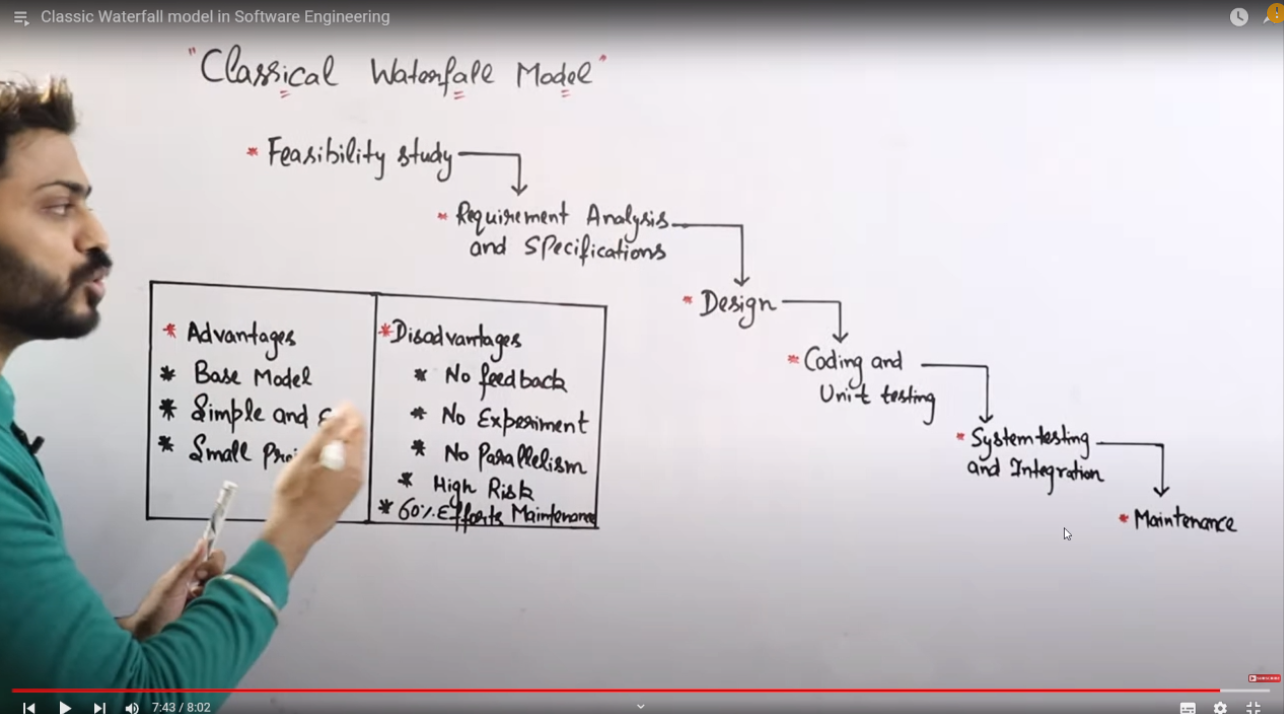 Classic Waterfall model in Software Engineering
"Classical Waterfall Model"
* Feasibility study
* Requirement Analysis
and Specifications
* Design
* Coding and
Unit testing
* System testing
and Integration
* Maintenance
* Advantages
* Base Model
* Simple and
* Small
* Disadvantages
* No feedback
* No Experiment
* No Parallelism
* High Risk
* 60% Efforts Maintenance
7:43 / 8:02